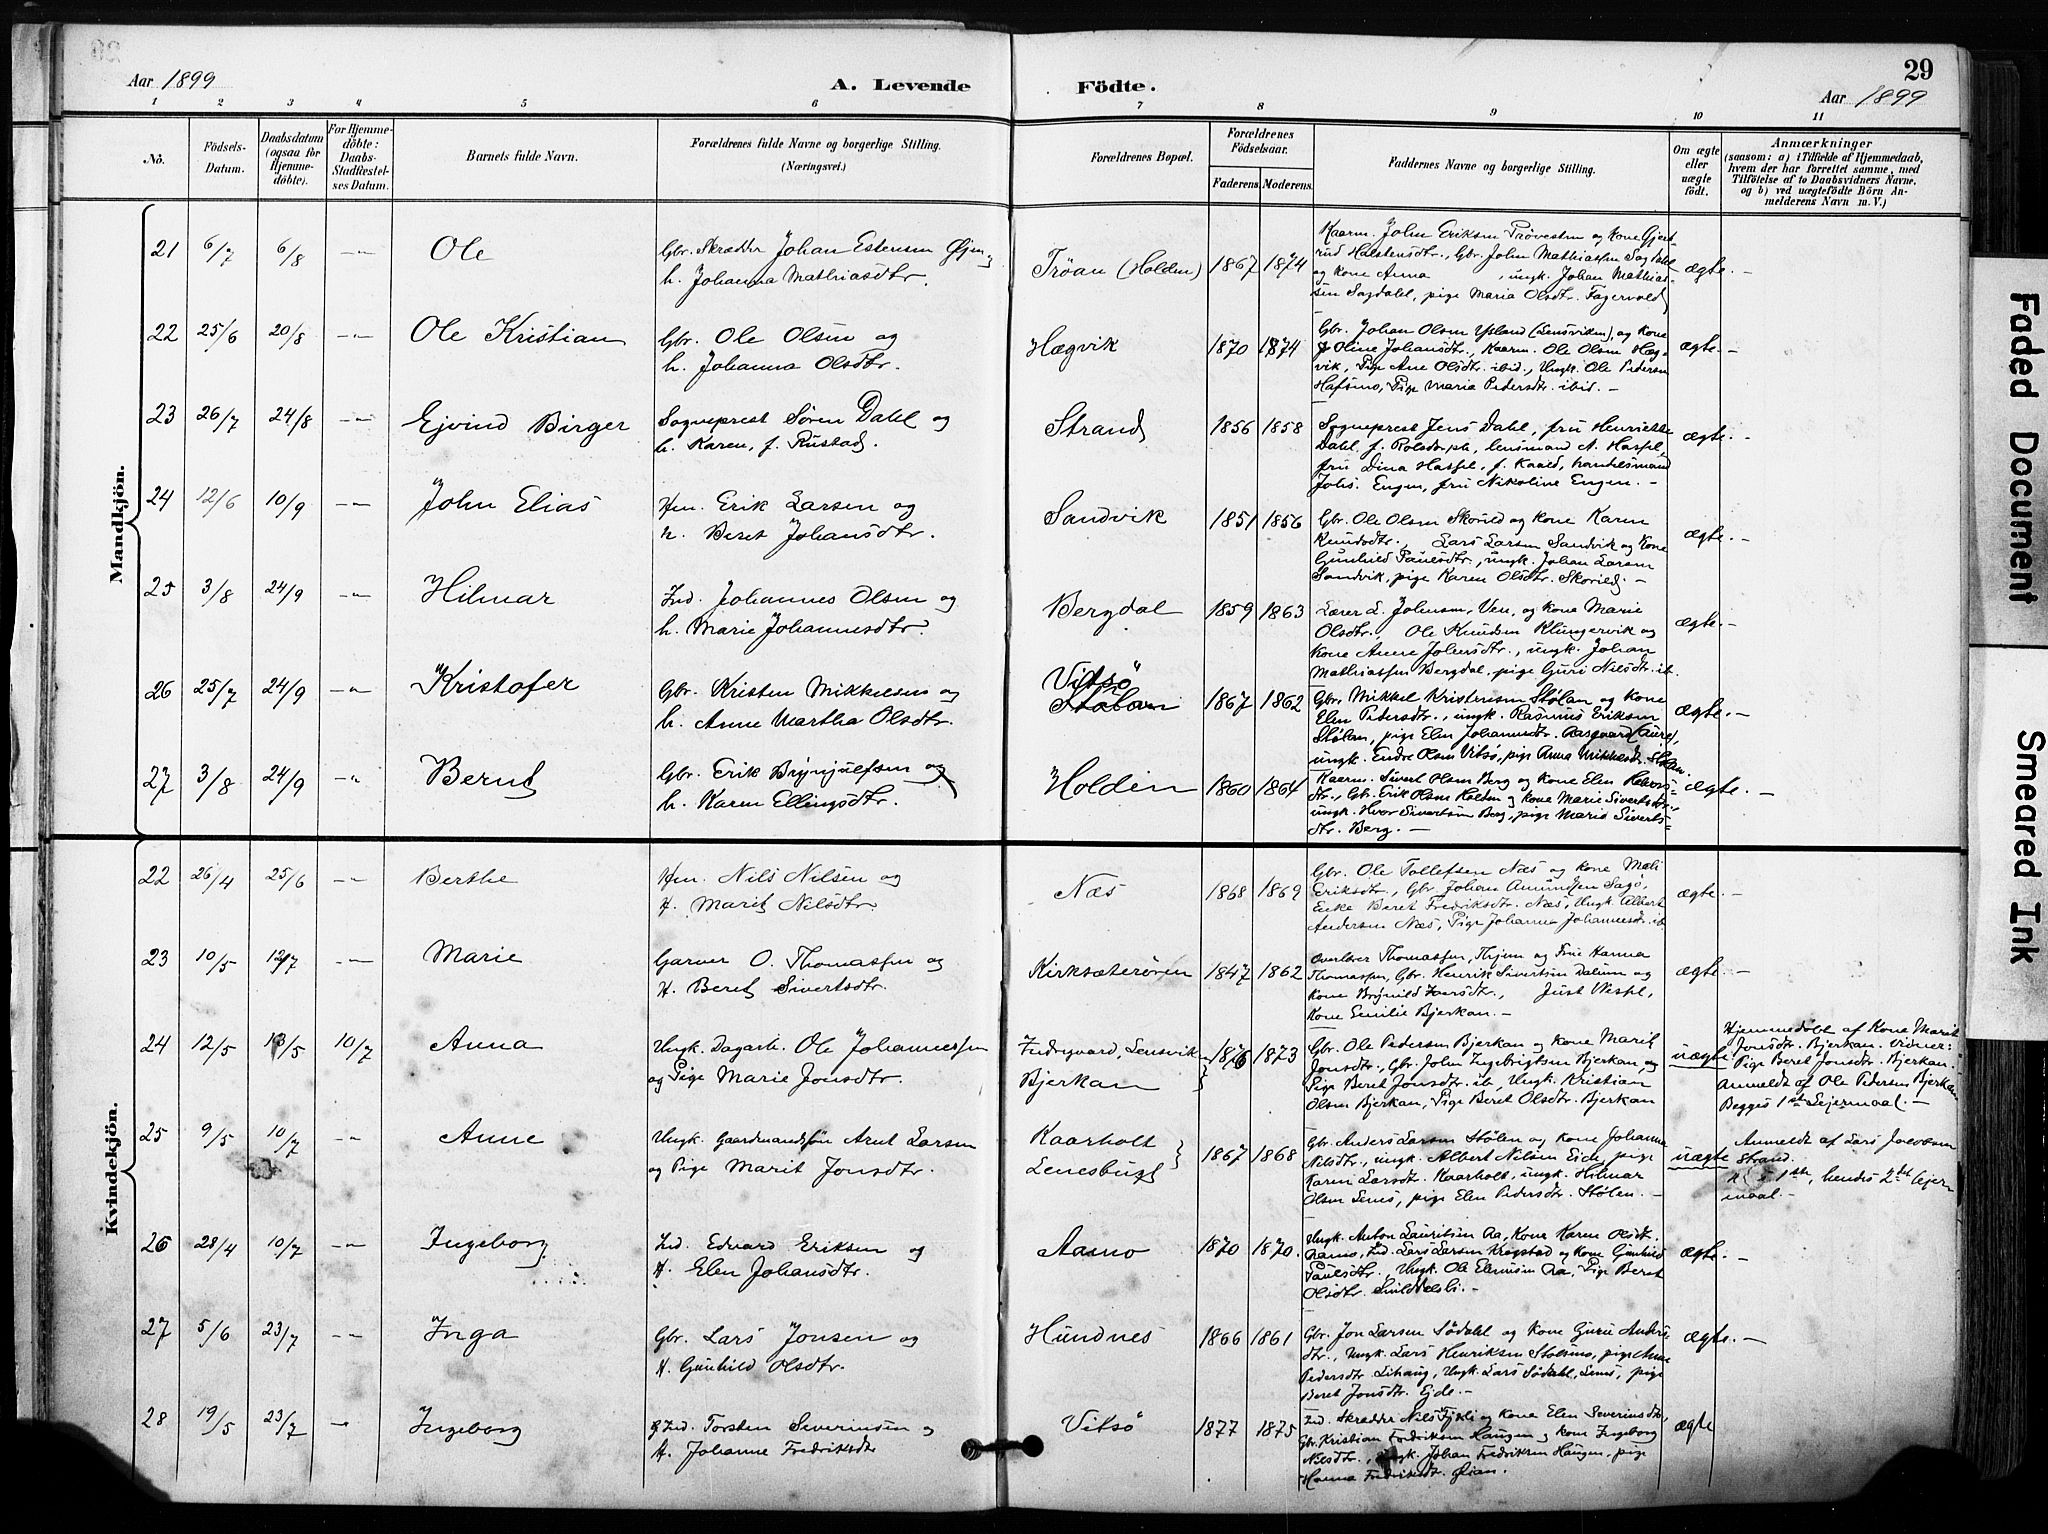 Aar 1899
A. Levende
Födte.
29
Aar 1899
1 2 3 4 5 6 7 8 9 10 11
No.
Födsels-
Datum.
Daabsdatum
(ogsaa for
Hjemme-
döbte).
For Hjemme-
döbte:
Daabs-
Stadfæstel-
ses Datum.
Barnets fulde Navn.
Forældrenes fulde Navne og borgerlige Stilling.
(Næringsvei.)
Forældrenes Bopæl.
Forældrenes
Födselsaar.
Faderens. Moderens.
Faddernes Navne og borgerlige Stilling.
Om ægte
eller
uægte
födt.
Anmærkninger
(saasom: a) i Tilfælde af Hjemmedaab,
hvem der har forrettet samme, med
Tilföielse af to Daabsvidners Navne,
og b) ved uægtefödte Börn An-
melderens Navn m. V.)
Mandkjön.
21 6/7 6/8 -"- Ole
Gbr. Skrædder Johan Estensen Øjen og
h. Johanna Mathiasdtr.
Tröan (Holden) 1867 1874
Kaarm. John Eriksen Prövesten og Kone Gjert-
rud Halstensdtr., Gbr. John Mathiassen Sagdahl
og kone Anna , ungk. Johan Mathias-
sen Sagdahl, pige Maria Olsdtr. Fagervold
ægte.-
22 25/6 20/8 -"- Ole Kristian
Gbr. Ole Olsen og
h. Johanna Olsdtr.
Hægvik 1870 1874
Gbr. Johan Olsen Ysland (Lensviken), og kone
Oline Johansdtr., Kaarm. Ole Olsen Hæg-
vik, Pige Ane Olsdtr. ibid., Ungk. Ole Pedersen
Hafsmo, Pige Maria Pedersdtr. ibid. -
ægte.-
23 26/7 24/8 -"- Ejvind Birger
Sogneprest Sören Dahl og
h. Karen, f. Rustad.
Strand 1856 1858
Sogneprest Jens Dahl, fru Henriette
Dahl, f. Rolsdorph, lensmand A. Hassel,
fru Dina Hassel, f. Kaald, handelsmand
Johs. Engen, fru Nikoline Engen. -
ægte.-
24 12/6 10/9 -"- John Elias
Hm. Erik Larsen og
h. Beret Johansdtr.
Sandvik 1851 1856
Gbr. Ole Olsen Skorild og kone Karen
Knudsdtr., Lars Larsen Sandvik og Kone
Gunhild Paulsdtr., ungk. Johan Larsen
Sandvik, pige Karen Olsdtr. Skorild. -
ægte.-
25 3/8 24/9 -"- Hilmar
Ind. Johannes Olsen og
h. Marie Johannesdtr.
Bergdal 1859 1863
Lærer L. Johnsen, Ven, og kone Marie
Olsdtr., Ole Knudsen Klungervik og
kone Anne Johnsdtr., ungk. Johan
Mathiassen Bergdal, pige Guri Nilsdtr. ib.
ægte.-
26 25/7 24/9 -"- Kristofer
Gbr. Kristen Mikkelsen og
h. Anne Martha Olsdtr.
Vitsö
Stölan 1867 1862
Gbr. Mikkel Kristensen Stölan og kone
Elen Pedersdtr., ungk. Rasmus Eriksen
Stölan, pige Elen Johannesdtr. Aasgaard (Aure),
ungk. Endre Olsen Vitsö, pige Anna Mikkelsdtr. Stölan.
ægte.-
27 3/8 24/9 -"- Bernt
Gbr. Erik Brynjulfsen og
h. Karen Ellingsdtr.
Holden 1860 1864
Kaarm. Sivert Olsen Berg og kone Elen
dtr., Gbr. Erik Olsen Holden og kone Marie Sivertsdtr.,
ungk. Iver Sivertsen Berg, pige Marie Siverts-
dtr. Berg. -
ægte. -
Kvindekjön.
22 26/4 25/6 -"- Berthe
Hm. Nils Nilsen og
H. Marit Nilsdtr.
Næs 1868 1869
Gbr. Ole Tollefsen Næs og kone Mali
Eriksdtr., Gbr Johan Amundsen Sagö,
Enke Beret Fredriksdtr. Næs, Ungk. Albert
Andersen Næs, Pige Johanna Johannesdtr. ib
ægte. -
23 10/5 12/7 -"- Marie
Garver O. Thomassen og
H. Beret Sivertsdtr.
Kirksæterören 1847 1862
Overlærer Thomassen, Thjem og Frue Hanna
Thomassen, Gbr. Henrik Sivertsen Dalum og
kone Brynild Larsdtr., Just Wessel,
Kone Emilie Bjerkan. -
ægte. -
24 12/5 13/5 10/7 Anna
Ungk. Dagarb. Ole Johannessen
og Pige Marie Jonsdtr.
Indregaard, Lensvik
Bjerkan 1876 1873
Gbr. Ole Pedersen Bjerkan og kone Marit
Jonsdtr., Gbr. John Ingebrigtsen Bjerkan og
Pige Beret Jonsdtr. ib, Ungk. Kristian
Olsen Bjerkan, Pige Beret Olsdtr. Bjerkan
uægte
Hjemmedöbt af Kone Marit
Jonsdtr. Bjerkan. Vidner:
Pige Beret Jonsdtr. Bjerkan.
Anmeldt af Ole Pedersen Bjerkan
Begges 1ste Lejermaal. -
25 9/5 10/7 -"- Anne
Ungk. Gaardmandssön Arnt Larsen
og Pige Marit Jonsdtr.
Kaarholt
Lenesbugt 1867 1868
Gbr. Anders Larsen Stölen og kone Johanna
Nilsdtr., ungk. Albert Nilsen Eide, pige
Karen Larsdtr. Kaarholt, ungk. Hilmar
Olsen Lenes, pige Elen Pedersdtr. Stölen. -
uægte
Anmeldt af Lars Jacobsen
Strand.
1ste, hendes 2det Lejer
maal. -
26 28/4 10/7 -"- Ingeborg
Ind. Edvard Eriksen og
H. Elen Johansdtr.
Aasmo 1870 1870.
Ungk. Anton Lauritsen Aa, Kone Karen Olsdtr.
Aasmo, Ind. Lars Larsen Krogstad og kone Gunhild
Paulsdtr. Ungk. Ole Elensen Aa, Pige Beret
Olsdtr.
ægte. -
27 5/6 23/7 -"- Inga
Gbr. Lars Jonsen og
H. Gunhild Olsdtr.
Hundnes 1866 1861
Gbr. Jon Larsen Södahl og kone Guru Anders
dtr., Ungk. Lars Henriksen Stolsmo, pige Anne
Pedersdtr Lihaug, Ungk. Lars Södahl, Lenes, pige
Beret Jonsdtr. Ejde. -
ægte. -
28 19/5 23/7 -"- Ingeborg
Ind. Torsten Severinsen og
H. Johanne Fredriksdtr
Vitsö 1877 1875
Ind. Skrædder Nils Fjeli og kone Elen Severinsdtr,
Gbr. Kristian Fredriksen Haugen og kone Ingeborg
Nilsdtr., ungk. Johan Fredriksen Haugen, pige
Hanna Fredriksdtr. Øian.
ægte
Faded Document
Smeared Ink